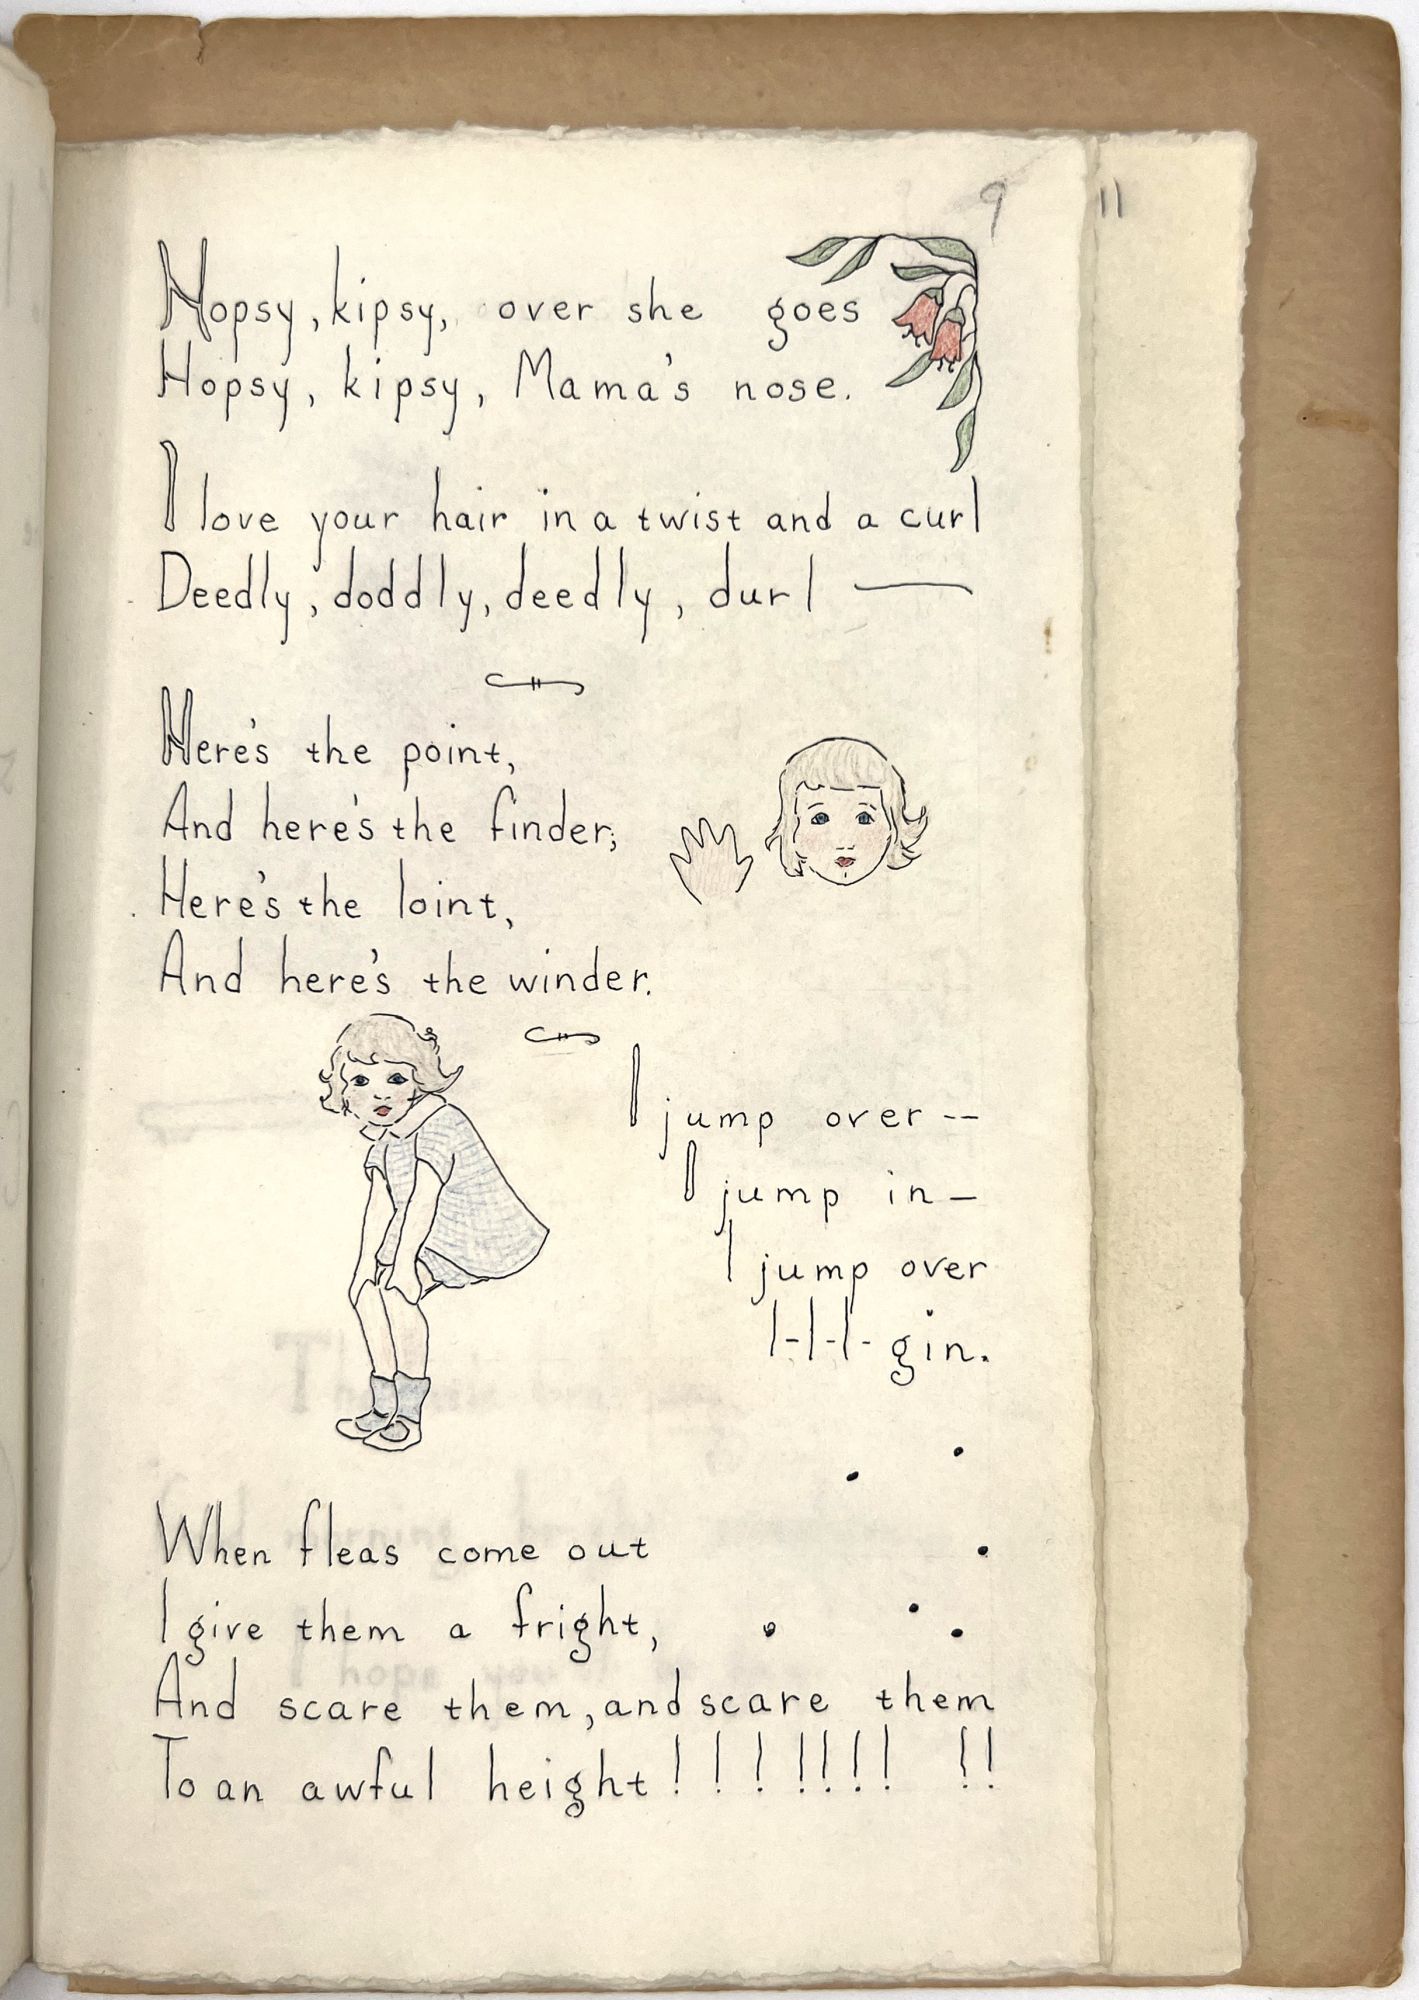 9
11
Hopsy, kipsy, over she goes
Hopsy, kipsy, Mama's nose.
I love your hair in a twist and a curl
Deedly, doddly, deedly, durl —
Here's the point,
And here's the finder;
Here's the loint,
And here's the winder.
I jump over --
I jump in —
I jump over
I-I-I- gin.
When fleas come out
I give them a fright,
And scare them, and scare them
To an awful height ! ! ! ! ! ! ! ! !